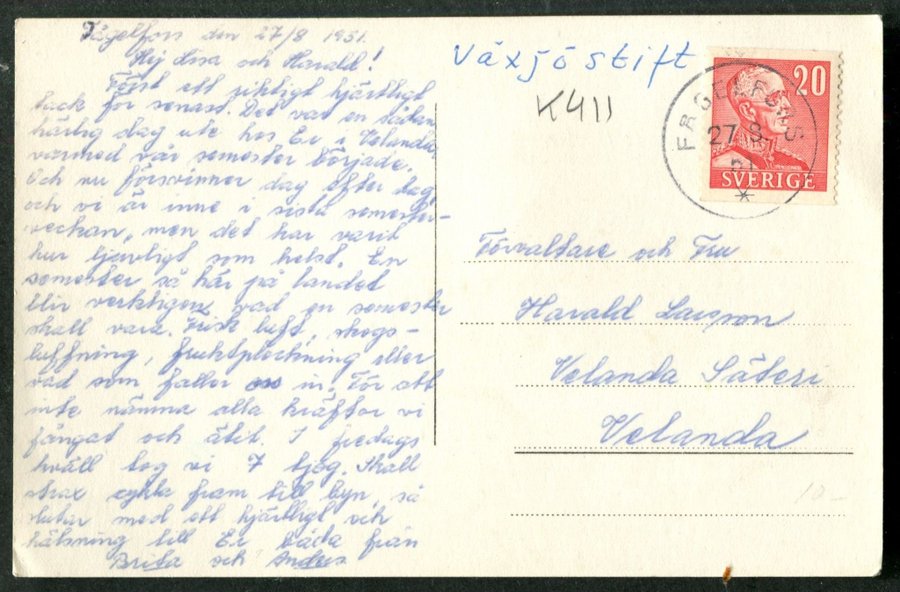 Fågelfors den 27/8 1951.
Hej Lisa och Harald!
Först ett riktigt hjärtligt
tack för senast. Det var en sådan
härlig dag ute hos Er i Velanda
varmed vår semester började.
Och nu försvinner dag efter dag
och vi är inne i sista semester-
veckan, men det har varit
hur ljuvligt som helst. En
semester så här på landet
blir verkligen vad en semester
skall vara. Frisk luft, skogs-
luffning, fruktplockning eller
vad som faller oss in. För att
inte nämna alla kräftor vi
fångat och ätit. I fredags
kväll tog vi 7 tjog. Skall
strax cykla fram till byn, så
slutar med ett hjärtligt och
hälsning till Er båda från
Brita och Anders
Växjö stift
K411
20
SVERIGE
FÅGELFORS
27.8.
51
Förvaltare och Fru
Harald Larsson
Velanda Säteri
Velanda
10-